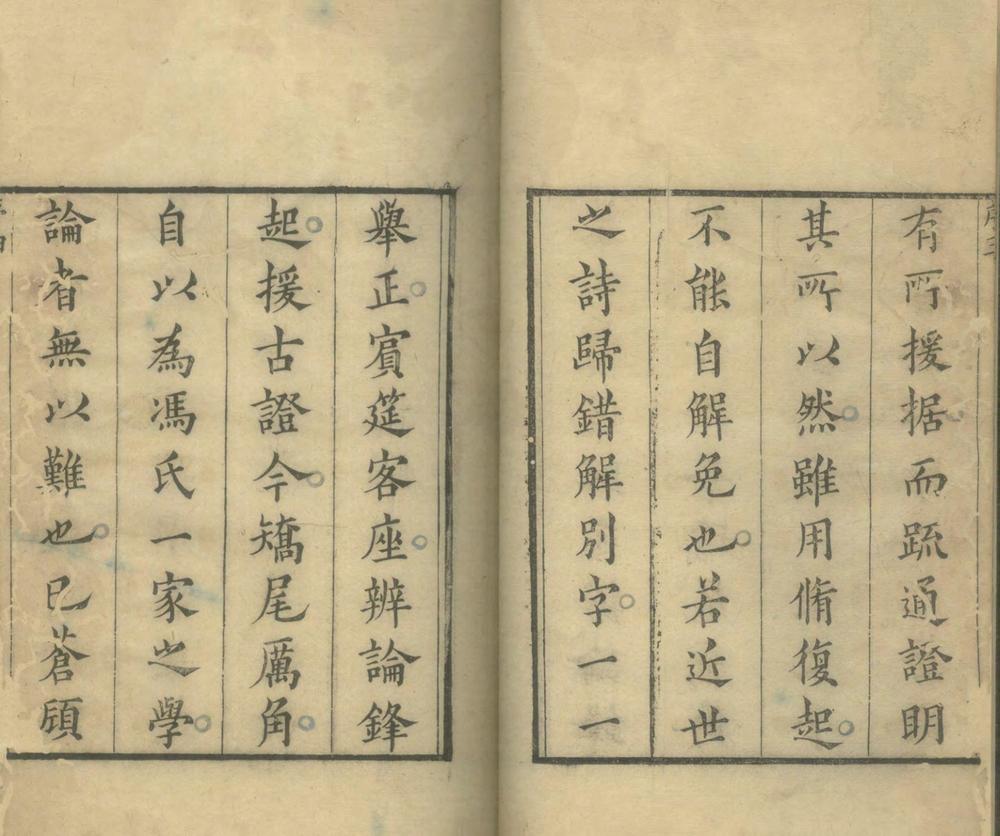 有所援据而疏通證明
其所以然雖用脩復起
不能自解免也若近世
之詩歸錯解別字一一
舉正賓筵客座辨論鋒
起援古證今矯尾厲角
自以為馮氏一家之學
論者無以難也已蒼頎